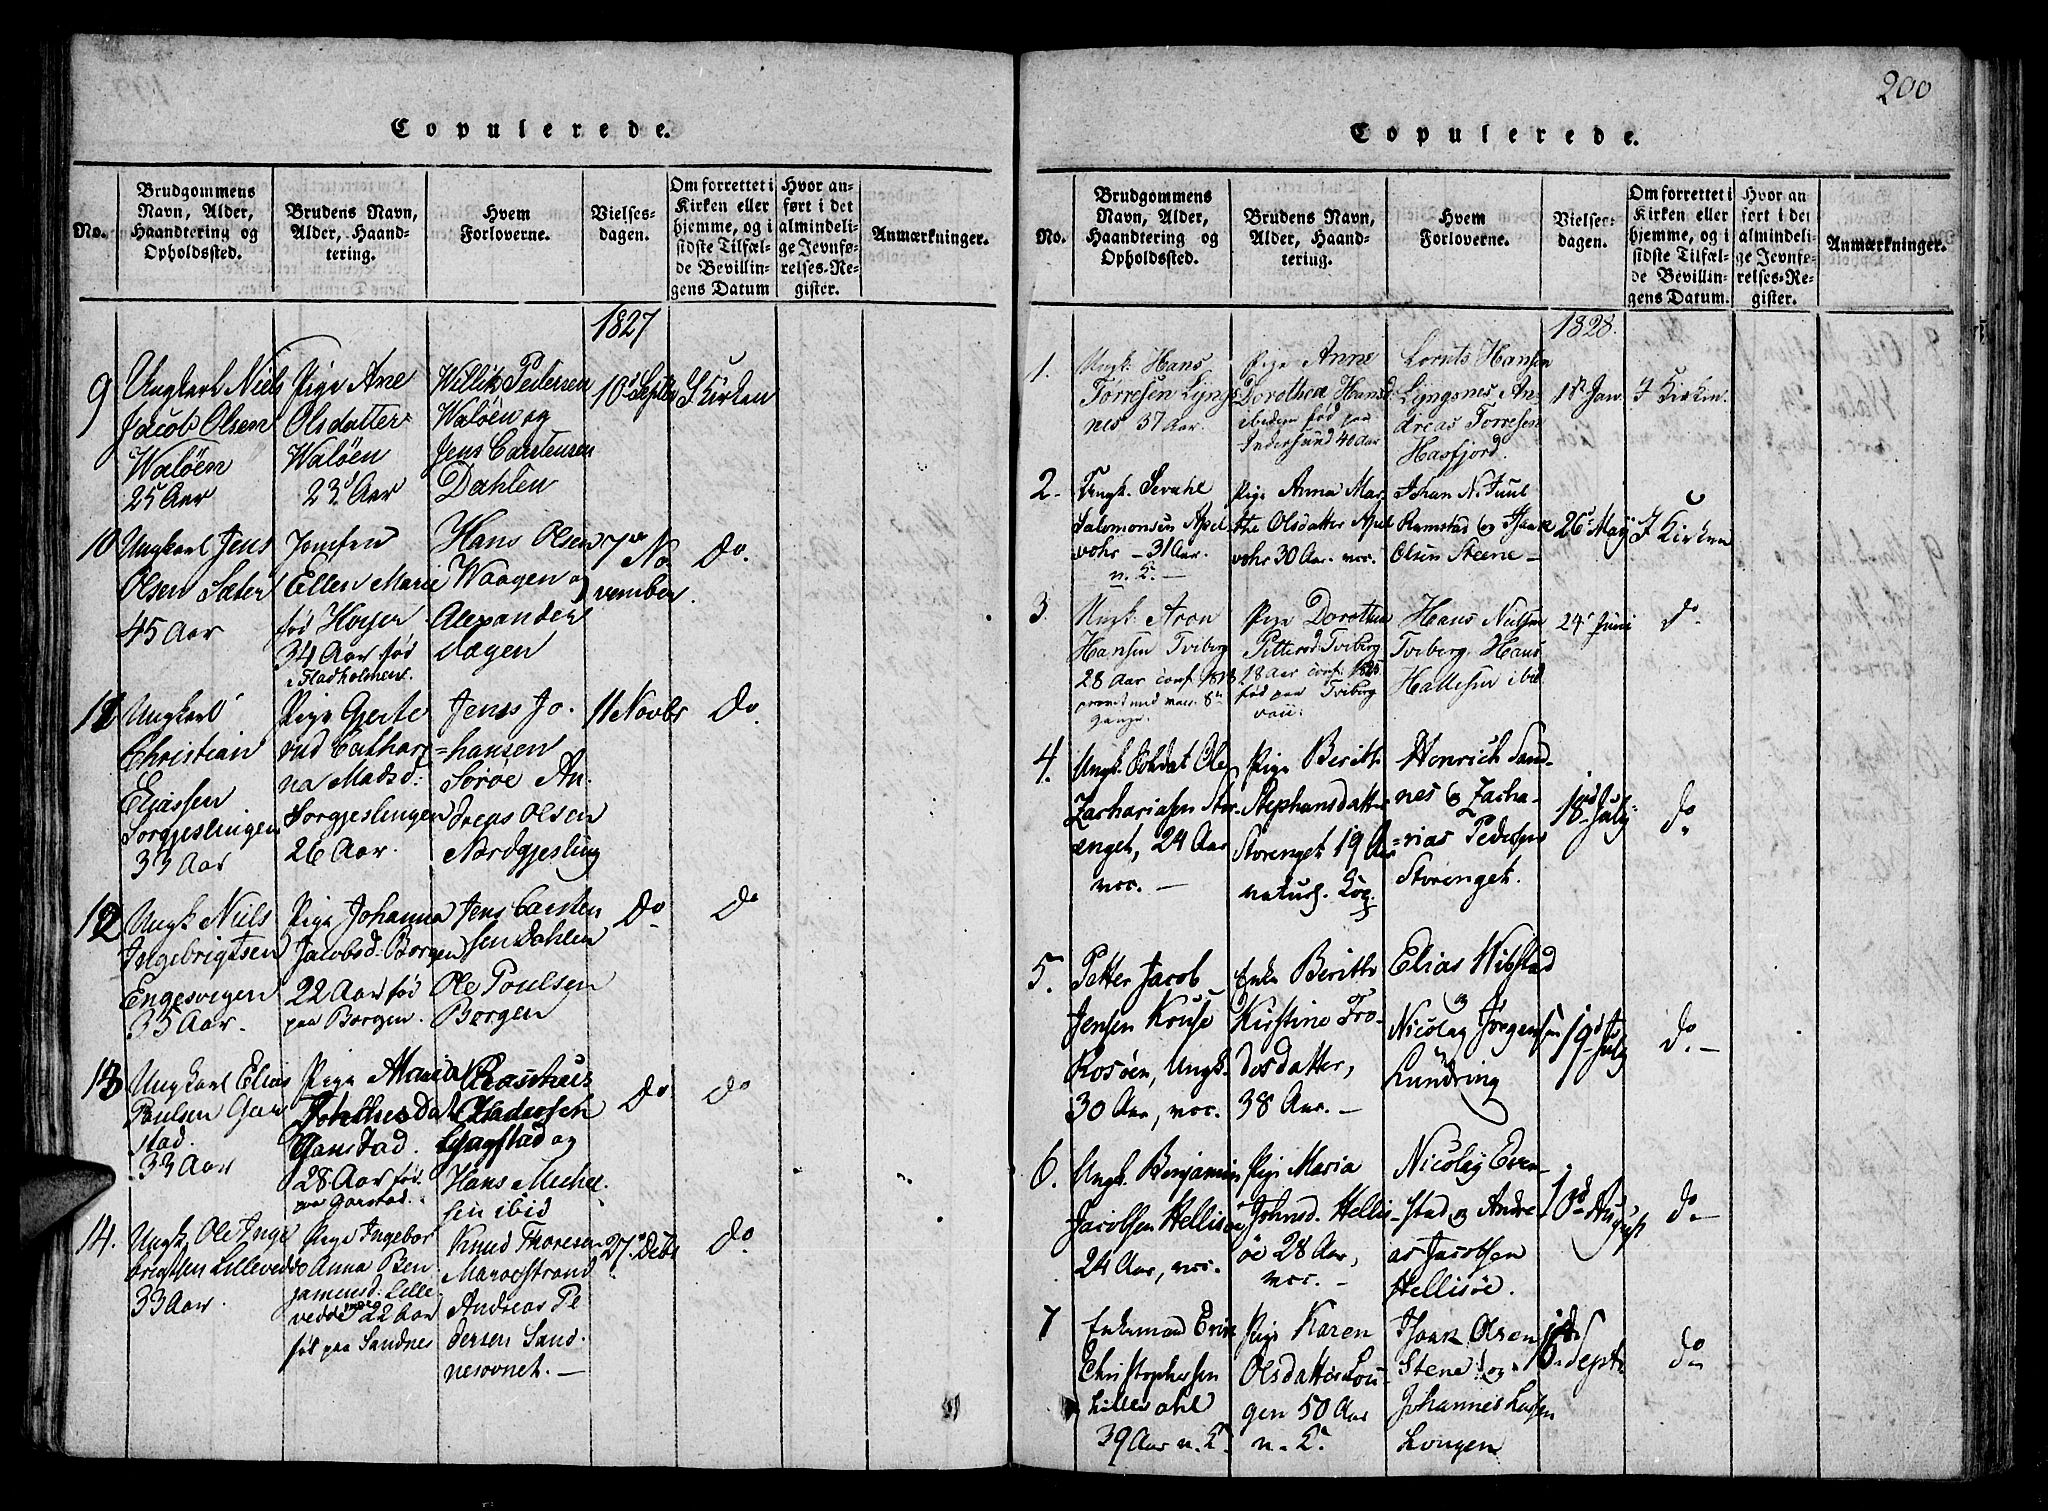 Copulerede.
No.
Brudgommens
Navn, Alder,
Haandtering og
Opholdssted.
Brudens Navn,
Alder, Haand-
tering.
Hvem
Forloverne.
Vielses-
dagen.
Om forrettet i
Kirken eller
hjemme, og i
sidste Tilfæl-
de Bevillin-
gens Datum
Hvor an-
ført i det
almindeli-
ge Jevnfø-
relses-Re-
gister.
Anmærkninger.
1827
9
Ungkarl Niels
Jacob Olsen
Waløen
25 Aar
Pige Ane
Olsdatter
Waløen
23 Aar
Willik Pedersen
Waløen og
Jens Carstensen
Dahlen
10 Septbr
I Kirken
10
Ungkarl Jens
Olsen Sæter
45 Aar
Jomfru
Ellen Marie
fød Hoyer
34 Aar fød
Fladholmen.
Hans Olsen
Waagen og
Alexander
dagen
7 No-
vember
do.
11
Ungkarl
Christian
Eliassen
Sorgjeslingen
33 Aar
Pige Gjerte-
rud Cathar-
na Madsd:
Sorgjeslingen
26 Aar.
Jens Jo-
hansen
Soroe An-
dreas Olsen
Nordgjesling
11 Novbr
do.
12
Ungk Niels
Ingebrigtsen
Engesvigen
35 Aar.
Pige Johanna
Jacobsd: Borgen
22 Aar fød
paa Borgen.
Jens Carsten
sen Dahlen
Ole Poulsen
Borgen
do
do
13
Ungkarl Elias
Paulsen Gar
stad.
33 Aar
Pige Maria
Garstad.
28 Aar fød
paa Garstad.
og
Hans Michel-
sen ibid
do.
do
14.
Ungk. Ole Inge
brigtsen Lillevedde
33 Aar.
Pige Ingebor
Anna Ben
jamensd: Lille
vedde 22 Aar
fød paa Sandnes
Knud Thoresen
Marøestrand
Andreas Pe
dersen Sand
nesovnet. —
27 Debr
do.
200
Copulerede.
No.
Brudgommens
Navn, Alder,
Haandtering og
Opholdssted.
Brudens Navn,
Alder, Haand-
tering.
Hvem
Forloverne.
Vielses-
dagen.
Om forrettet i
Kirken eller
hjemme, og i
sidste Tilfæl-
de Bevillin-
gens Datum.
Hvor an
ført i det
almindeli-
ge Jevnfø-
relses-Re-
gister.
Anmærkninger.
1828.
1.
Ungk. Hans
Tørresen Lyngs
nes 37 Aar.
Pige Anne
Dorothea Hansd:
ibidem fød paa
Indersund 40 Aar
Lornts Hansen
Lyngsnes An-
dreas Torresen
Hasfjord.
1 Jan.
I Kirken.
2.
Ungk. Sivahl
Salomonsen Apel
vohr — 31 Aar.
Pige Anna Mar-
the Olsdatter Apel
vohr 30 Aar. vac.
Johan N. Juul
Ramstad og Isaak
Olsen Steene —
26 May
I Kirken
3.
Ungk: Aron
Hansen Tviberg
28 Aar conf. 1818
Pige Dorothea
Pettersd: Tviberg
28 Aar conf.
fød paa Tviberg
vac:
Hans Nielsen
Tviberg. Hans
Hallesen ibid
24 Juni
do.
4.
Ungk. Soldat Ole
Zachariasen Stor
enget, 24 Aar
vac. —
Pige Berith
Stephansdatter
Storenget 19 Aar
naturl. Kop.
Henrich Sand-
nes og Zacha-
rias Pedersen
Storenget.
18 July
do
5.
Petter Jacob
Jensen Kruse
Rosøen, Ungk.
30 Aar, vac.
Enke Berithe
Kirstine Tro-
dosdatter,
38 Aar. —
Elias Wibstad
og
Nicolay Jørgensen
Lundring
19 July
do. —
6.
Ungk. Benjamin
Jacobsen Hellisøe
24 Aar, vac.
Pige Maria
Johnsd. Hellis-
øe 28 Aar,
vac. —
Nicolay Even-
stad og Andre
as Jacobsen
Hellisøe.
10 August
do —
7
Enkemand Erik
Christophersen
Lille ohl
39 Aar n. C.
Pige Karen
Olsdatter Lou-
gen 50 Aar
n. C.
Isaak Olsen
Stene og
Johannes Larsen
Lougen
Septr
do